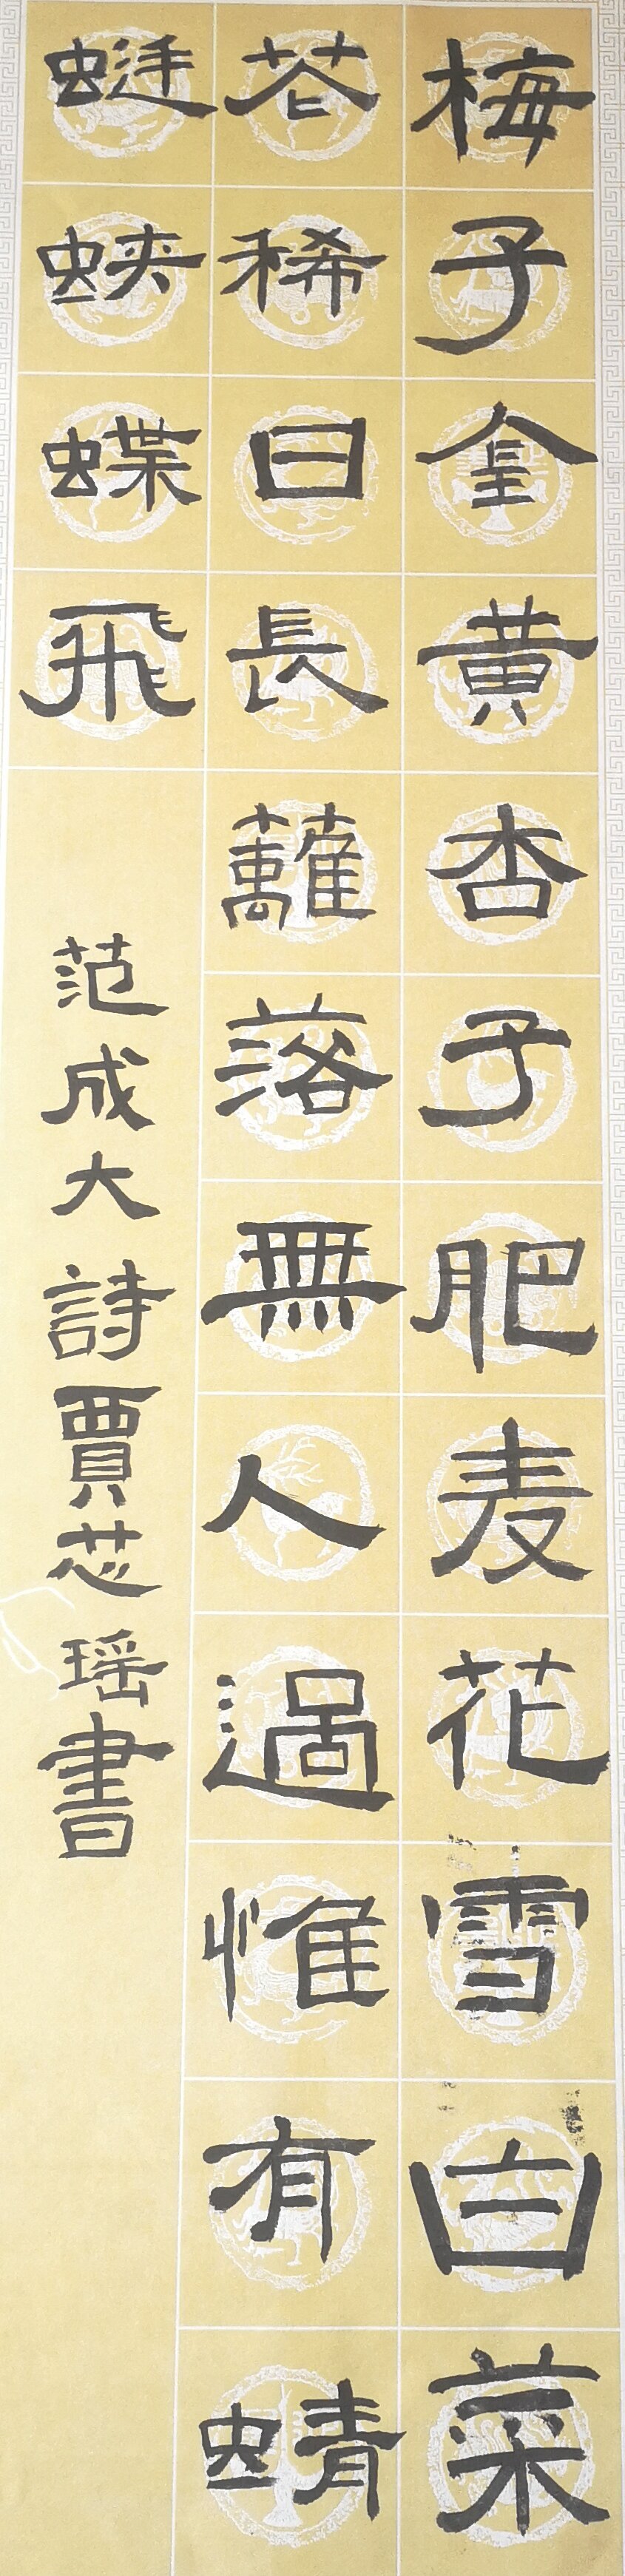 梅子金黄杏子肥麦花雪白菜
花稀日長蘺落無人過惟有蜻
蜓蛺蝶飛
范成大詩賈芯瑶書